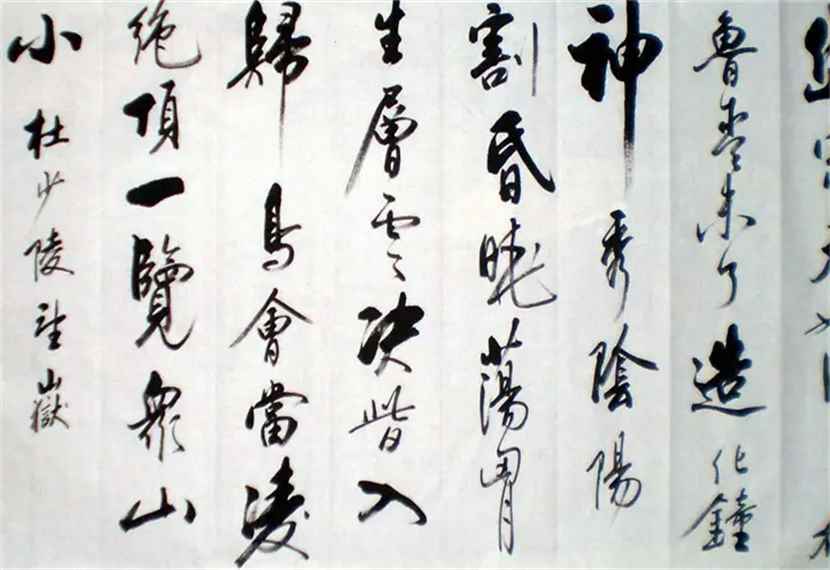 魯青未了造化鐘
神秀陰陽
割昏曉蕩胸
生層雲决眥入
歸鳥會當凌
絶頂一覽衆山
小 杜少陵望嶽